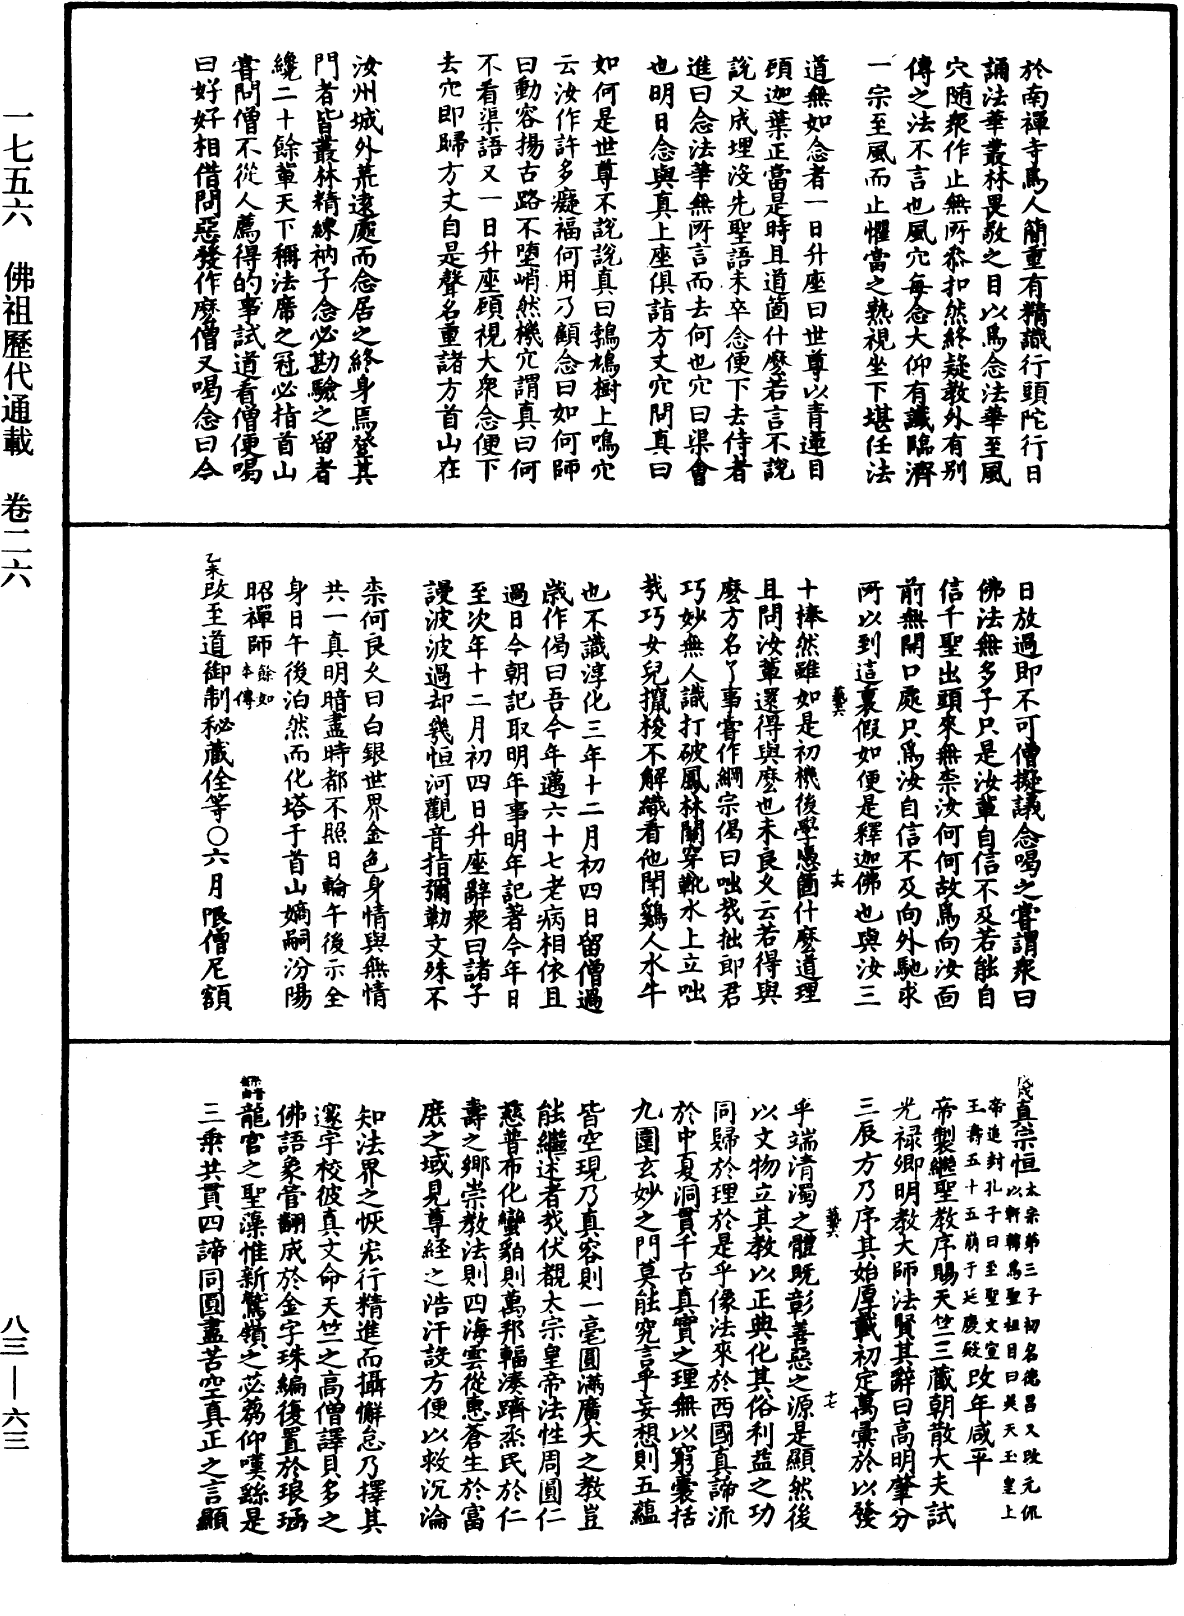 一七五六　佛祖歷代通載　卷二六
八三—六三
於南禪寺爲人簡重有精識行頭陀行日
誦法華叢林畏敬之目以爲念法華至風
穴随衆作止無所叅扣然終疑教外有别
傳之法不言也風穴每念大仰有讖臨濟
一宗至風而止懼當之熟視坐下堪任法
道無如念者一日升座曰世尊以青蓮目
顧迦葉正當是時且道箇什麽若言不說
說又成埋没先聖語未卒念便下去侍者
進曰念法華無所言而去何也穴曰渠會
也明日念與真上座俱詣方丈穴問真曰
如何是世尊不說說真曰鵓鳩樹上鳴穴
云汝作許多癡福何用乃顧念曰如何師
曰動容揚古路不堕峭然機穴謂真曰何
不看渠語又一日升座顧視大衆念便下
去穴即歸方丈自是聲名重諸方首山在
汝州城外荒遠處而念居之終身焉登其
門者皆叢林精練衲子念必勘驗之留者
纔二十餘輩天下稱法席之冠必指首山
甞問僧不從人薦得的事試道看僧便喝
曰好好相借問惡發作麽僧又喝念曰今
日放過即不可僧擬議念喝之甞謂衆曰
佛法無多子只是汝輩自信不及若能自
信千聖出頭來無柰汝何何故爲向汝面
前無開口處只爲汝自信不及向外馳求
所以到這裏假如便是釋迦佛也與汝三
十捧然雖如是初機後學憑箇什麽道理
且問汝輩還得與麽也未良久云若得與
麽方名了事甞作綱宗偈曰咄哉拙即君
巧妙無人識打破鳳林關穿靴水上立咄
哉巧女兒攛梭不解織看他鬥鷄人水牛
也不識淳化三年十二月初四日留僧過
歲作偈曰吾今年邁六十七老病相依且
過日今朝記取明年事明年記著今年日
至次年十二月初四日升座辭衆曰諸子
謾波波過却幾恒河觀音指彌勒文殊不
柰何良久曰白銀世界金色身情與無情
共一真明暗盡時都不照日輪午後示全
身日午後泊然而化塔于首山嫡嗣汾陽
昭禪師餘如本傳
乙未改至道御制秘藏佺等○六月限僧尼額
戊戌真宗恒太宗第三子初名德昌又改元侃
以軒轅爲聖祖目曰昊天玉皇上
帝追封孔子曰至聖文宣
王壽五十五崩于延慶殿改年咸平
帝製繼聖教序賜天竺三藏朝散大夫試
光禄卿明教大師法賢其辭曰高明肇分
三辰方乃序其始厚載初定萬彙於以發
乎端清濁之體既彰善惡之源是顯然後
以文物立其教以正典化其俗利益之功
同歸於理於是乎像法來於西國真諦流
於中夏洞貫千古真實之理無以窮囊括
九圍玄妙之門莫能究言乎妄想則五蘊
皆空現乃真容則一毫圓滿廣大之教豈
能繼述者哉伏覩太宗皇帝法性周圓仁
慈普布化蠻貊則萬邦輻湊躋烝民於仁
壽之鄉崇教法則四海雲從惠蒼生於富
庶之域見尊經之浩汗設方便以救沉淪
知法界之恢宏行精進而攝懈怠乃擇其
邃宇校彼真文命天竺之高僧譯貝多之
佛語象管翻成於金字珠編復置於琅函
龍宫之聖藻惟新鷲嶺之苾蒭仰嘆繇是
三乗共貫四諦同圓盡苦空真正之言顯